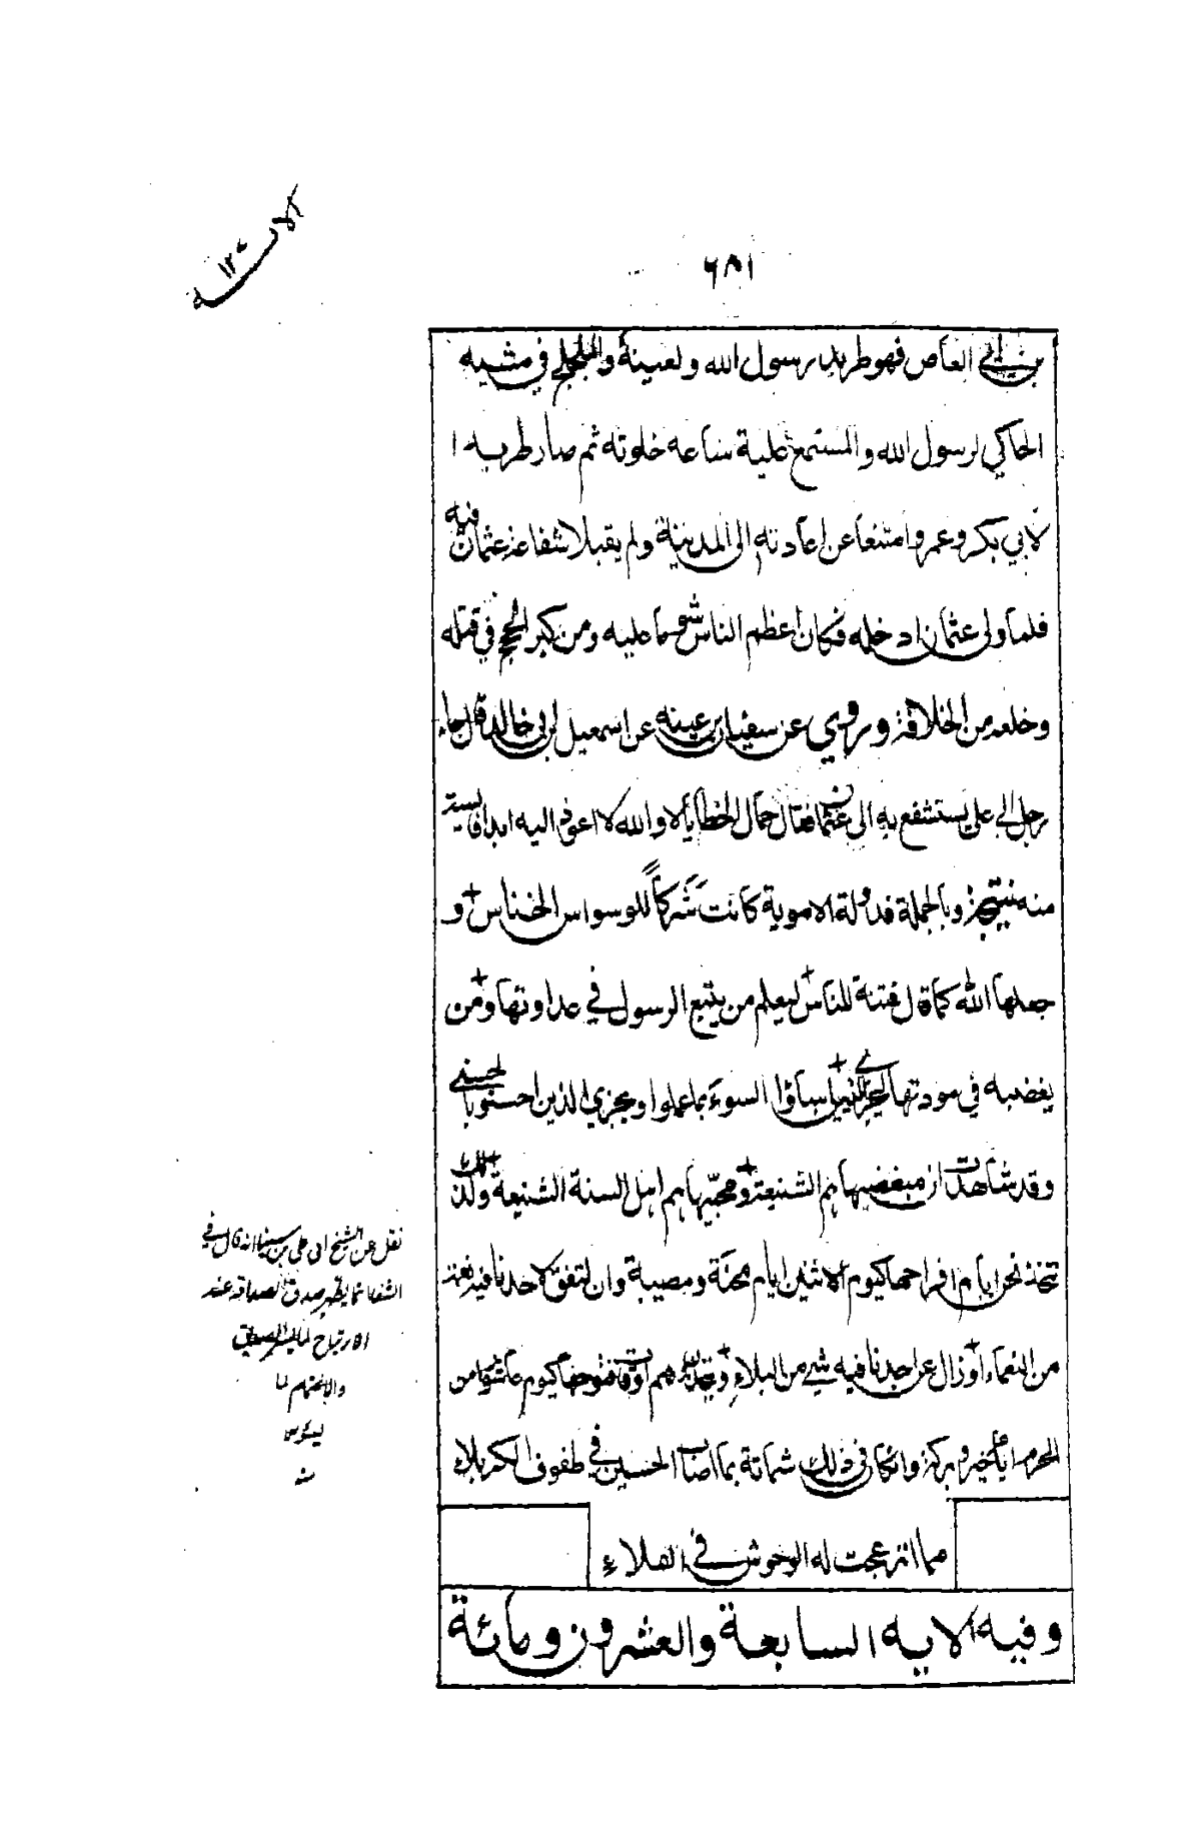 الآية ١٢٧
٦٨١
بن ابي العاص فهو طريد رسول الله ولعينة والمتخلج في مشيه
الحاكي لرسول الله والمستمع علية ساعه خلوته ثم صار طريدا
لابي بكر وعمر وامتنعا عن اعادته الى المدينة ولم يقبلا شفاعة عثمان فيه
فلما ولى عثمان ادخله فكان اعظم الناس شوما عليه ومن كبر الحجج في قتله
وخلعه من الخلافة وروي عن سفيان بن عيينه عن اسمعيل بن ابي خالد قال جاء
رجل الى علي يستشفع به الى عثمان فقال حمال الخطايا لا والله لا اعود اليه ابدا فايسته
منه نتيجة وبالجملة فدولة الاموية كانت شركاً للوسواس الخناس و
جعلها الله كما قال فتنة للناس ليعلم من يتبع الرسول في عداوتها ومن
يغضبه في مودتها ليجزي الذين اساؤا السوء بما عملوا ويجزي الذين احسنوا بالحسنى
وقد شاهدت ان مبغضيها هم الشيعة ومحبيها هم اهل السنة الشنيعة ولذلك
تتخذ نحن ايام افراحها كيوم الاثنين ايام محنة ومصيبة وان لتفق لاحدنا فيه نعمة
من النعماء او زال عن احدنا فيه شيء من البلاء وتجد هم اوقات فتوحها كيوم عاشورا من
المحرم ايام خير وبركة وانكان في ذلك شماتة بما اصاب الحسين في طفوف الكربلاء
مما انزعجت له الوحوش في الفلاء
وفيه الايه السابعة والعشرون ومائة
نقل عن الشيخ ابي علي بن سينا انه قال في
الشفا انما يظهر صدق الصداقه عند
الارتياح لما يسر الصديق
والاهتمام لما
يسؤه